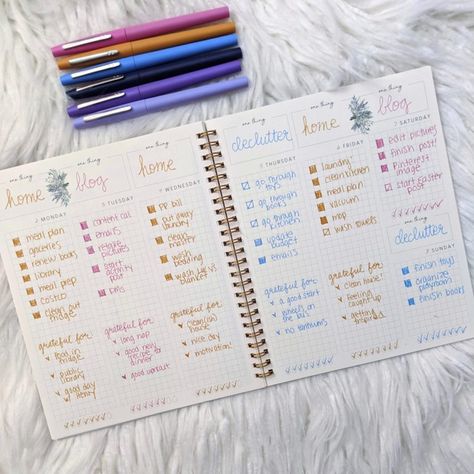 one thing
home
2 MONDAY
meal plan
groceries
renew books
library
meal prep
costco
clean out
fridge
grateful for
food in
fridge
public
library
good day
one thing
blog
TUESDAY
content cal
emails
retake
pictures
start
activity
post
pms
grateful for
long nap
good new
recipe for
dinner
good workout
one thing
home
WEDNESDAY
PP bill
put away
laundry
clean
master
wash
bedding
grateful for
clean(ish)
house
nice day
motivation!
one thing
declutter
THURSDAY
go through
toys
go through
books
go through
kitchen
update
budget
emails
grateful for
a good start
wheels on
the bus
no tantrums
one thing
home
FRIDAY
laundry
clean kitchen
meal plan
vacuum
mop
wash towels
grateful for
clean house!
feeling
caught up
getting
one thing
blog
SATURDAY
edit pictures
finish post!
Pinterest
image
start easter
post
one thing
declutter
SUNDAY
finish toys
organize
playroom
finish books